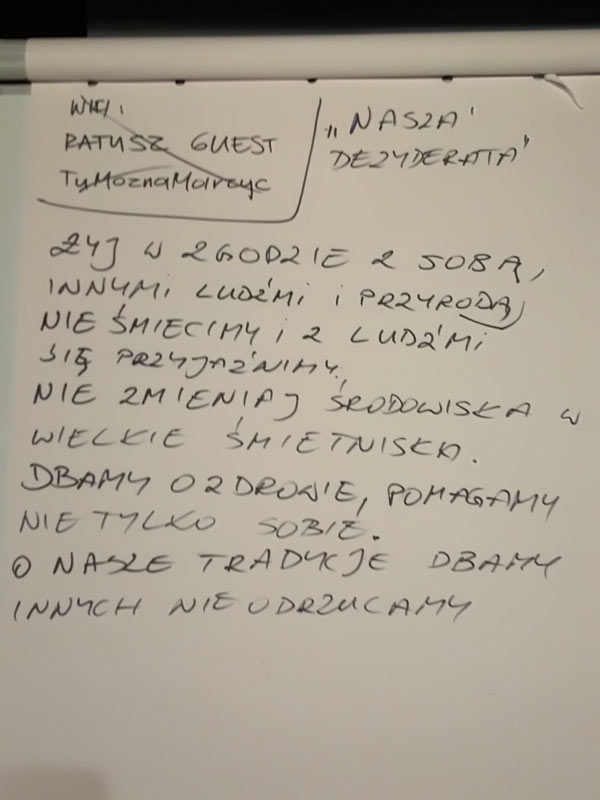 WIFI:
RATUSZ GUEST
TyMoznaMarzyc
„NASZA
DEZYDERATA"
ŻYJ W ZGODZIE Z SOBĄ,
INNYMI LUDŹMI I PRZYRODĄ
NIE ŚMIECIMY I Z LUDŹMI
SIĘ PRZYJAŹNIMY.
NIE ZMIENIAJ ŚRODOWISKA W
WIELKIE ŚMIETNISKA.
DBAMY O ZDROWIE, POMAGAMY
NIE TYLKO SOBIE.
O NASZE TRADYCJE DBAMY
INNYCH NIE ODRZUCAMY